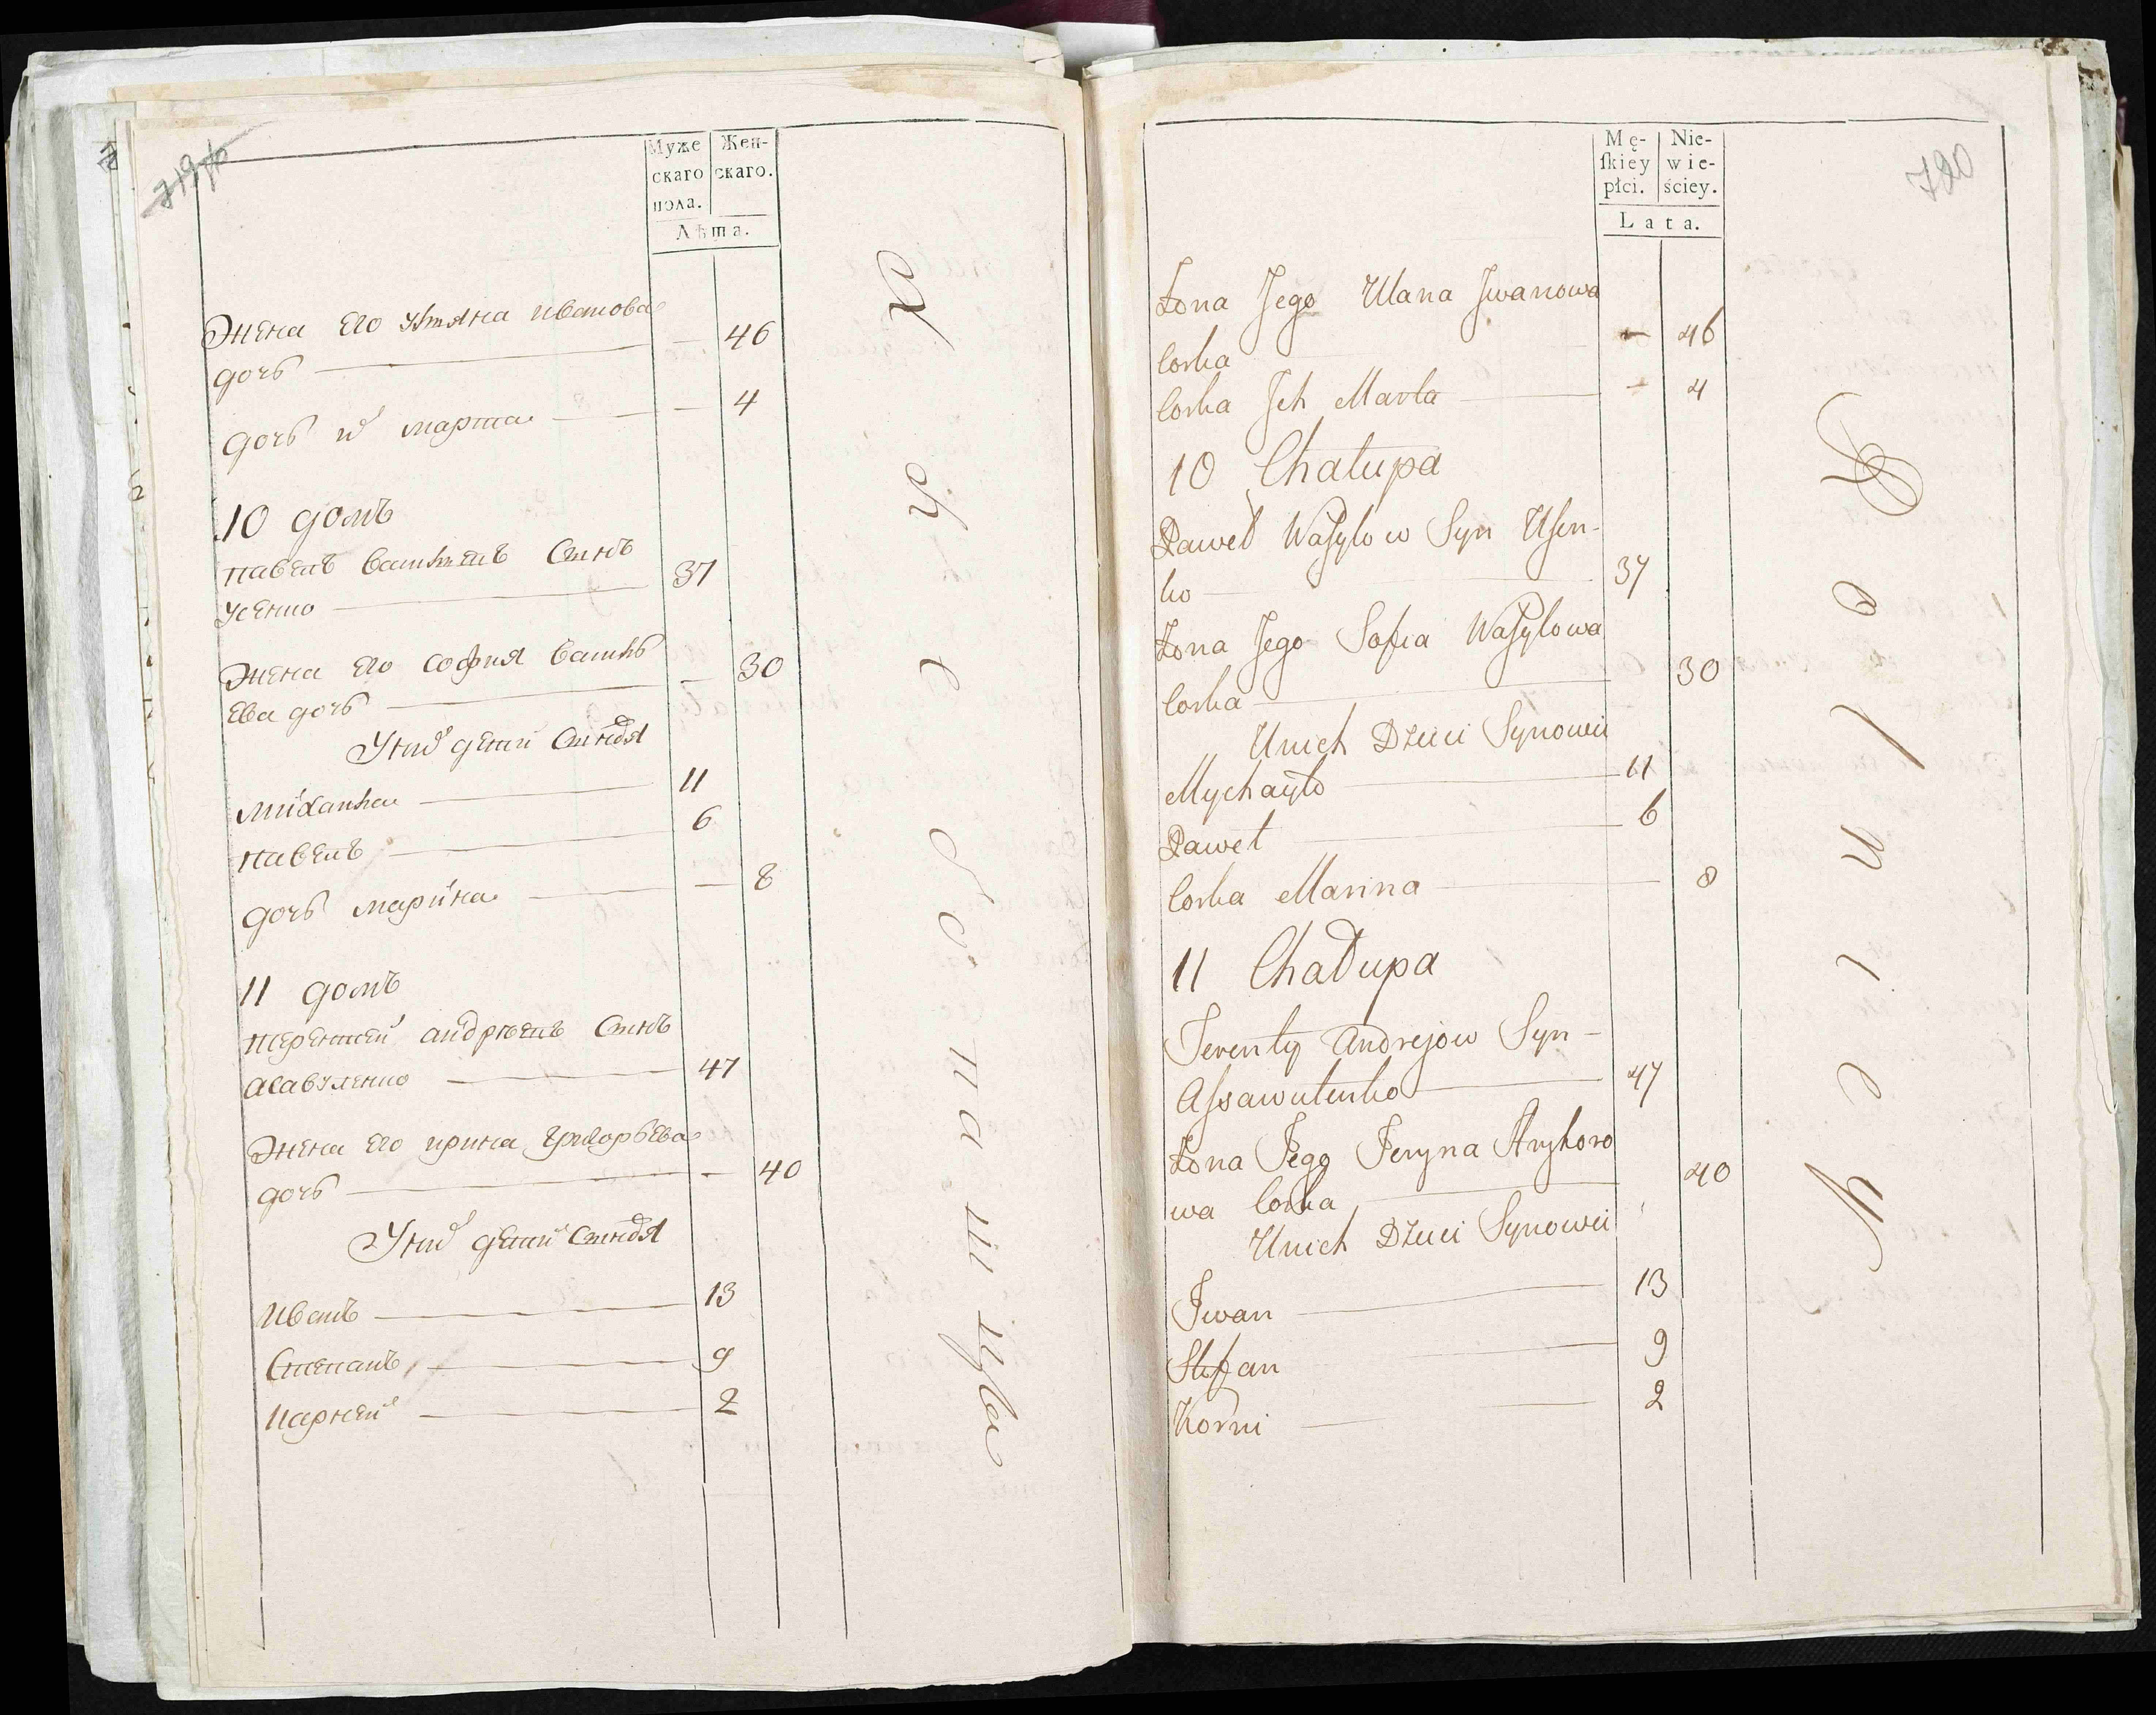 719об
Муже
скаго
пола.
Жен-
скаго.
Лѣта.
Жена его ульяна иванова
дочь — — 46
дочь их марта — — 4
10 домъ
павелъ васильевъ сынъ
усенко — 37
Жена его софия василь
ева дочь — — 30
У них детей сыновья
михайла — 11
павелъ — 6
дочь марина — — 8
11 домъ
терентей андреевъ сынъ
асавуленко — 47
Жена его ирина григорьева
дочь — — 40
У них детей сыновья
иванъ — 13
Степанъ — 9
карней — 2
720
Mę-
ſkiey
płci.
Nie-
wie-
ściey.
Lata.
Żona Jego Ulana Jwanowa
Corka — 46
Corka Jch Marta — — 4
10 Chałupa
Paweł Wasylow Syn Usen-
ko — 37
Żona Jego Sofia Wasylowa
Corka — 30
Unich Dzieci Synowei
Mychayło — 11
Paweł — 6
Corka Marina — 8
11 Chałupa
Terenty Andrejow Syn —
Assawulenko — 47
Żona Jego Jeryna Hryhoro
wa Corka — 40
Unich Dzieci Synowei
Jwan — 13
Stefan — 9
Korni — 2